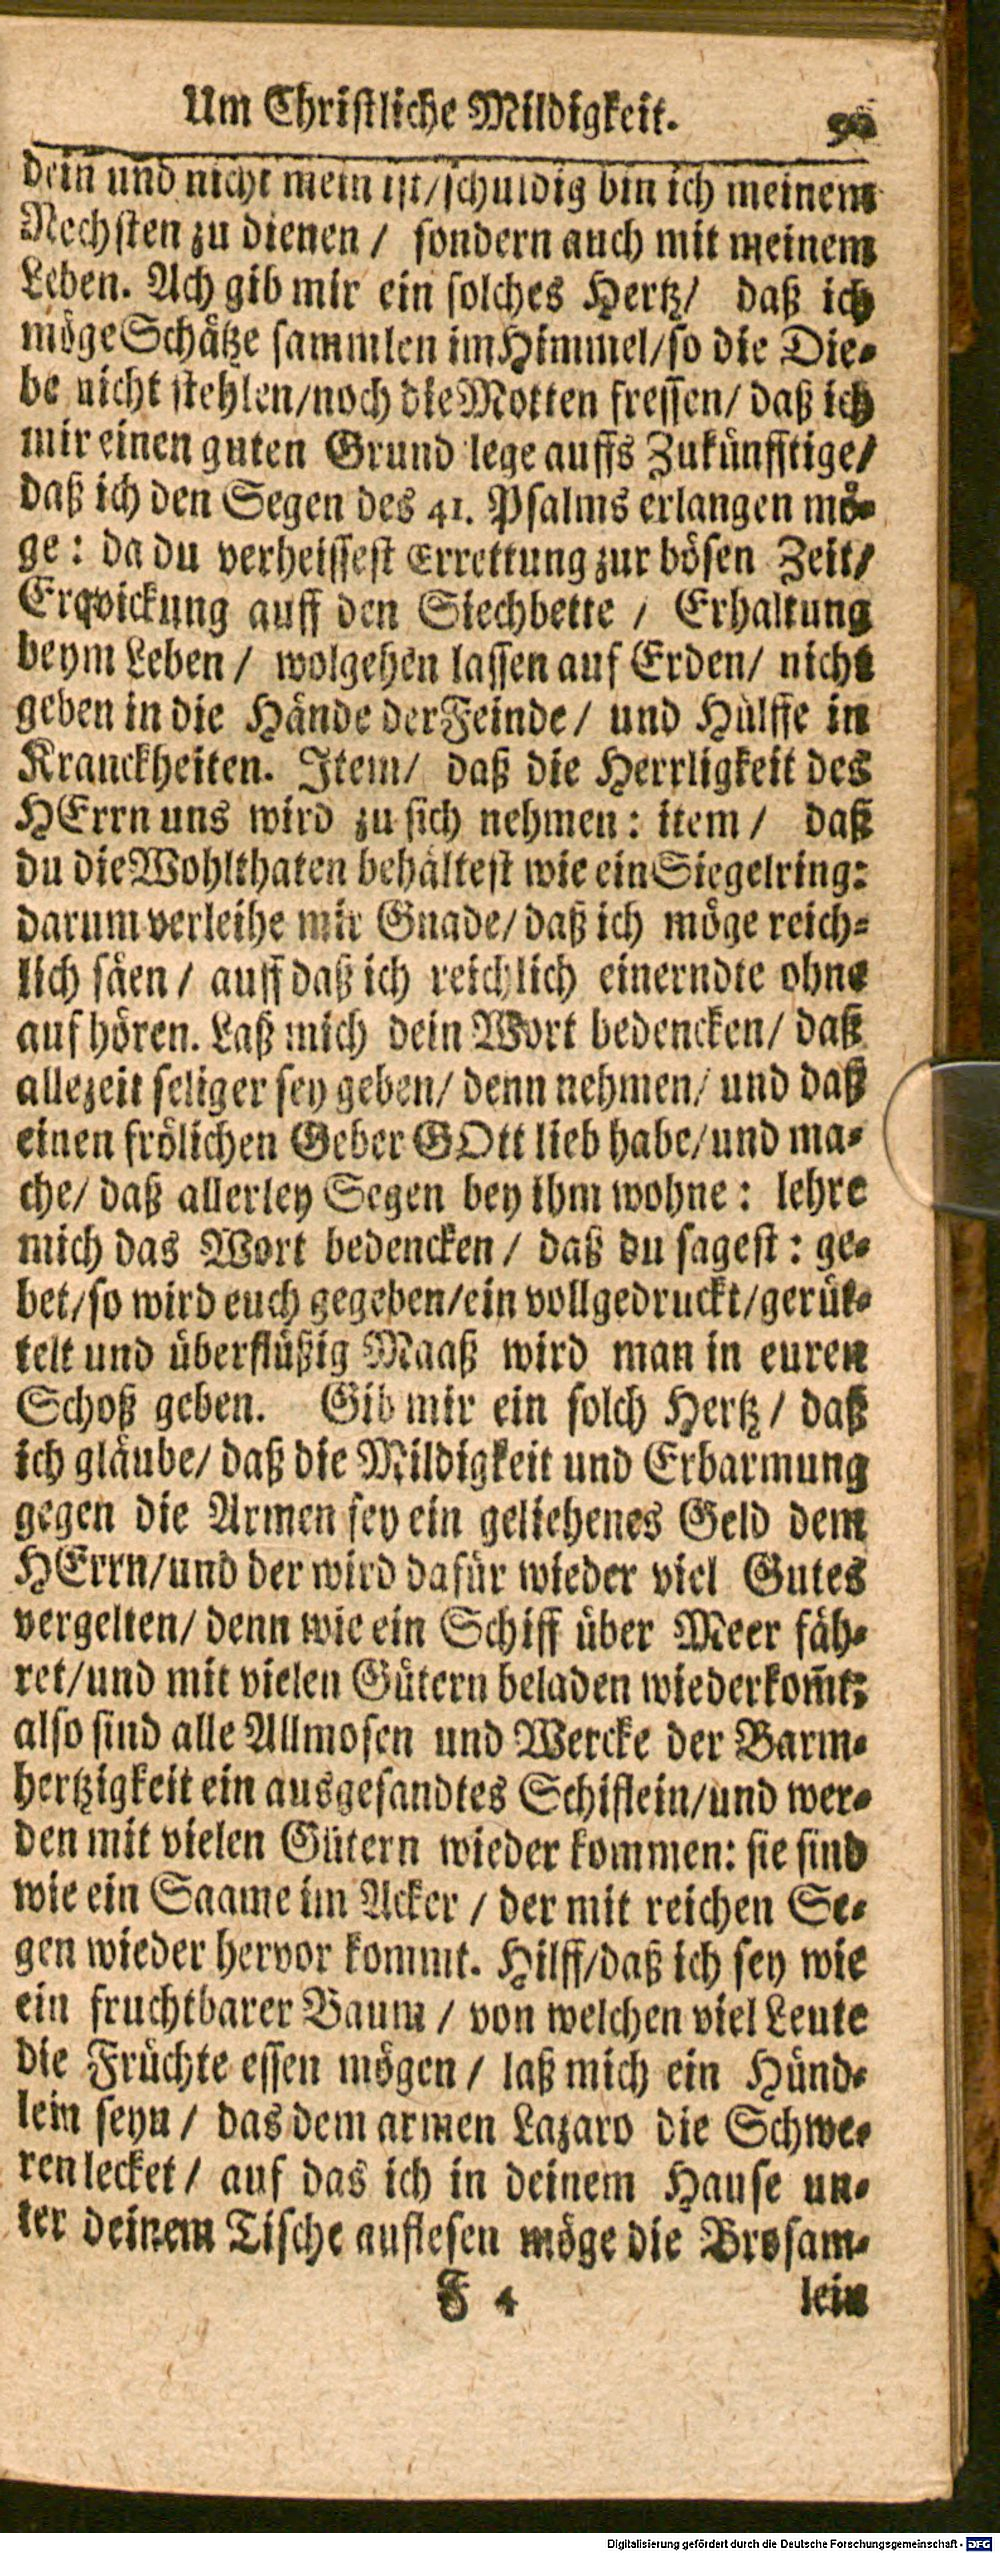 Um Christliche Mildigkeit.
dein und nicht mein ist/schuldig bin ich meinem
Nechsten zu dienen / sondern auch mit meinem
Leben. Ach gib mir ein solches Hertz/ daß ich
möge Schätze sammlen im Himmel/so die Die-
be nicht stehlen/noch die Motten fressen/ daß ich
mir einen guten Grund lege auffs Zukünfftige/
daß ich den Segen des 41. Psalms erlangen mö-
ge: da du verheissest Errettung zur bösen Zeit/
Erqvickung auff den Siechbette / Erhaltung
beym Leben / wolgehen lassen auf Erden/ nicht
geben in die Hände der Feinde / und Hülffe in
Kranckheiten. Item/ daß die Herrligkeit des
HErrn uns wird zu sich nehmen: item / daß
du die Wohlthaten behältest wie ein Siegelring:
darum verleihe mir Gnade/ daß ich möge reich-
lich säen / auff daß ich reichlich einerndte ohne
aufhören. Laß mich dein Wort bedencken/ daß
allezeit seliger sey geben/ denn nehmen/ und daß
einen frölichen Geber GOtt lieb habe/und ma-
che/ daß allerley Segen bey ihm wohne: lehre
mich das Wort bedencken / daß du sagest: ge-
bet/so wird euch gegeben/ein vollgedruckt/gerüt-
telt und überflüßig Maaß wird man in euren
Schoß geben. Gib mir ein solch Hertz / daß
ich gläube/ daß die Mildigkeit und Erbarmung
gegen die Armen sey ein geliehenes Geld dem
HErrn/und der wird dafür wieder viel Gutes
vergelten/ denn wie ein Schiff über Meer fäh-
ret/und mit vielen Gütern beladen wiederkom̃t:
also sind alle Allmosen und Wercke der Barm-
hertzigkeit ein ausgesandtes Schiflein/und wer-
den mit vielen Gütern wieder kommen: sie sind
wie ein Saame im Acker / der mit reichen Se-
gen wieder hervor kommt. Hilff/daß ich sey wie
ein fruchtbarer Baum / von welchen viel Leute
die Früchte essen mögen / laß mich ein Hünd-
lein seyn / das dem armen Lazaro die Schwe-
ren lecket / auf das ich in deinem Hause un-
ter deinem Tische auflesen möge die Brosam-
F 4 lein
Digitalisierung gefördert durch die Deutsche Forschungsgemeinschaft - DFG